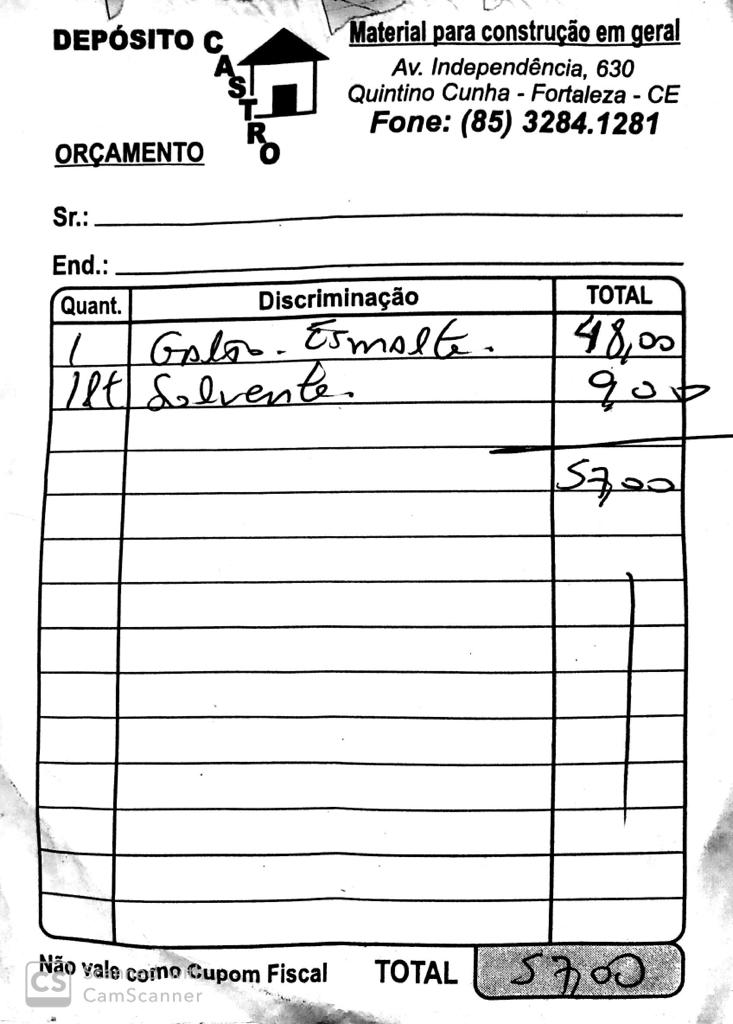 DEPÓSITO CASTRO
Material para construção em geral
Av. Independência, 630
Quintino Cunha - Fortaleza - CE
Fone: (85) 3284.1281
ORÇAMENTO
Sr.:
End.:
Quant. Discriminação TOTAL
1 Galão. Esmalte. 48,00
1lt Solvente. 9,00
57,00
Não vale como Cupom Fiscal TOTAL 57,00
CS CamScanner